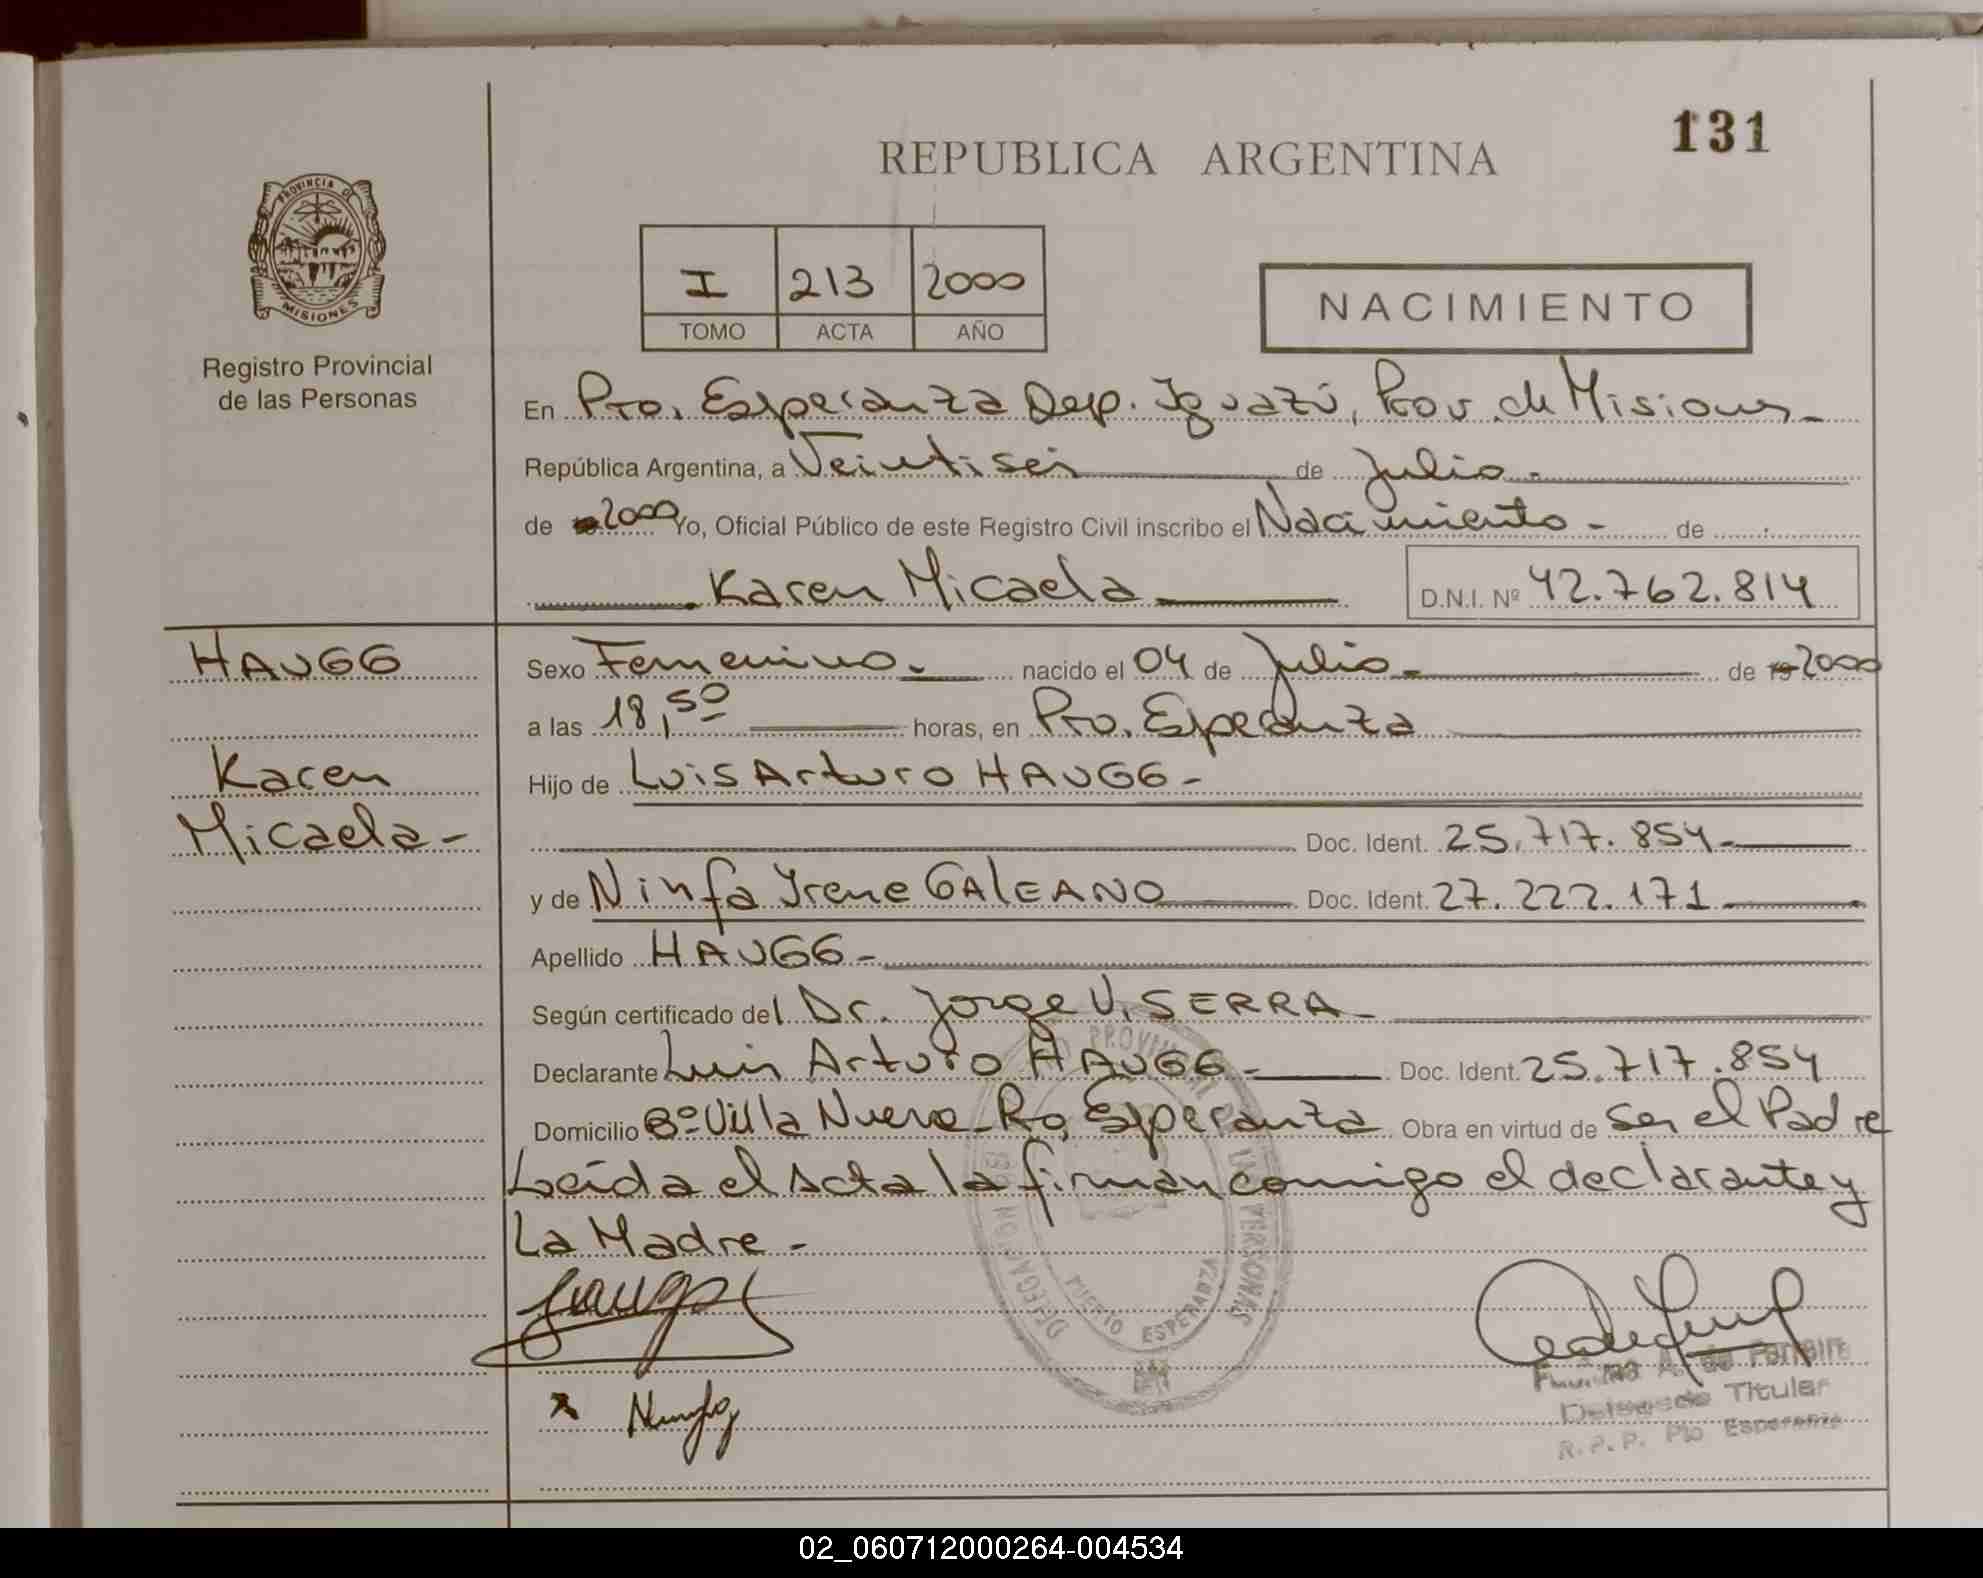 131
REPUBLICA ARGENTINA
PROVINCIA D
MISIONES
Registro Provincial
de las Personas
I 213 2000
TOMO ACTA AÑO
NACIMIENTO
En Pto. Esperanza Dep. Iguazú, Prov. de Misiones
República Argentina, a Veintiseis de Julio
de 2000 Yo, Oficial Público de este Registro Civil inscribo el Nacimiento de
Karen Micaela D.N.I. Nº 42.762.814
HAUGG
Karen
Micaela
Sexo Femenino nacido el 04 de Julio de 19 2000
a las 18,50 horas, en Pto. Esperanza
Hijo de Luis Arturo HAUGG
Doc. Ident. 25.717.854
y de Ninfa Irene GALEANO Doc. Ident. 27.222.171
Apellido HAUGG
Según certificado del Dr. Jorge V. SERRA
Declarante Luis Arturo HAUGG Doc. Ident. 25.717.854
Domicilio Bº Villa Nueva Pto Esperanza Obra en virtud de Ser el Padre
Leída el Acta la firman conmigo el declarante y
La Madre
PUERTO ESPERANZA
A. de Ferreira
Delegado Titular
R.P.P. Pto Esperanza
02_060712000264-004534